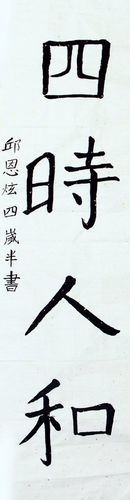 四時人和
邱恩炫四歲半書